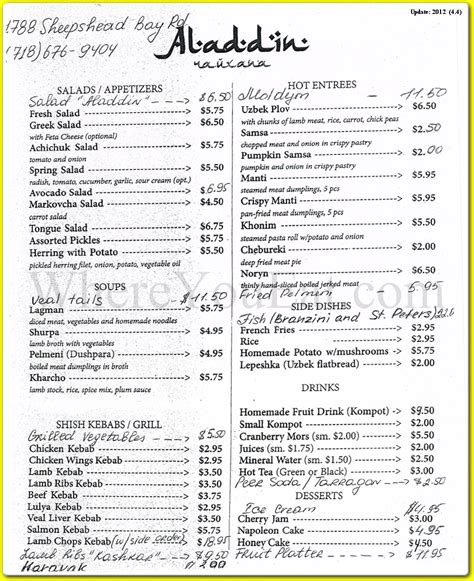 1788 Sheepshead Bay Rd
(718) 676-9404
Update: 2012 (4.4)
Aladdin
чайхана
SALADS / APPETIZERS
Salad "Aladdin" -> $6.50
Fresh Salad -> $5.75
Greek Salad -> $6.50
with Feta Cheese (optional)
Achichuk Salad -> $5.75
tomato and onion
Spring Salad -> $5.50
radish, tomato, cucumber, garlic, sour cream (opt.)
Avocado Salad -> $6.95
Markovcha Salad -> $4.50
carrot salad
Tongue Salad -> $6.75
Assorted Pickles -> $5.75
Herring with Potato -> $5.50
pickled herring filet, onion, potato, vegetable oil
SOUPS
Veal tails -> $11.50
Lagman -> $5.75
diced meat, vegetables and homemade noodles
Shurpa -> $4.95
lamb broth with vegetables
Pelmeni (Dushpara) -> $4.95
meat dumplings in broth
Kharcho -> $5.75
lamb stock, rice, spice mix, plum sauce
SHISH KEBABS / GRILL
Grilled Vegetables -> $5.50
Chicken Kebab -> $2.95
Chicken Wings Kebab -> $2.95
Lamb Kebab -> $3.50
Lamb Ribs Kebab -> $3.50
Beef Kebab -> $3.75
Lulya Kebab -> $2.95
Veal Liver Kebab -> $2.50
Salmon Kebab -> $5.75
Lamb Chops Kebab (w/side order)
Lamb Ribs "Kashkar" -> $9.50
HOT ENTREES
11.50
Uzbek Plov -> $6.50
with chunks of lamb meat, rice, carrot, chick peas
Samsa -> $2.50
chopped meat and onion in crispy pastry
Pumpkin Samsa -> $2.00
pumpkin and onion in crispy pastry
Manti -> $5.95
steamed meat dumplings, 5 pcs
Crispy Manti -> $5.95
pan-fried meat dumplings, 5 pcs
Khonim -> $5.50
steamed pasta roll w/potato and onion
Chebureki -> $2.50
deep fried meat pie
Noryn -> $6.50
thinly hand-sliced boiled jerked meat
Fried Pelmeni
SIDE DISHES
Fish (Branzini and St. Peters)
French Fries -> $2.95
Rice -> $2.95
Homemade Potato w/mushrooms -> $5.75
Lepeshka (Uzbek flatbread) -> $2.00
DRINKS
Homemade Fruit Drink (Kompot) -> $9.50
Small Kompot -> $2.00
Cranberry Mors (sm. $2.00) -> $5.50
Juices (sm. $1.75) -> $5.00
Mineral Water (sm. $2.00) -> $2.50
Hot Tea (Green or Black) -> $2.00
Pear Soda / Tarragon -> $2.50
DESSERTS
Ice Cream $4.95
Cherry Jam -> $3.00
Napoleon Cake -> $4.95
Honey Cake
Fruit Platter -> $11.95